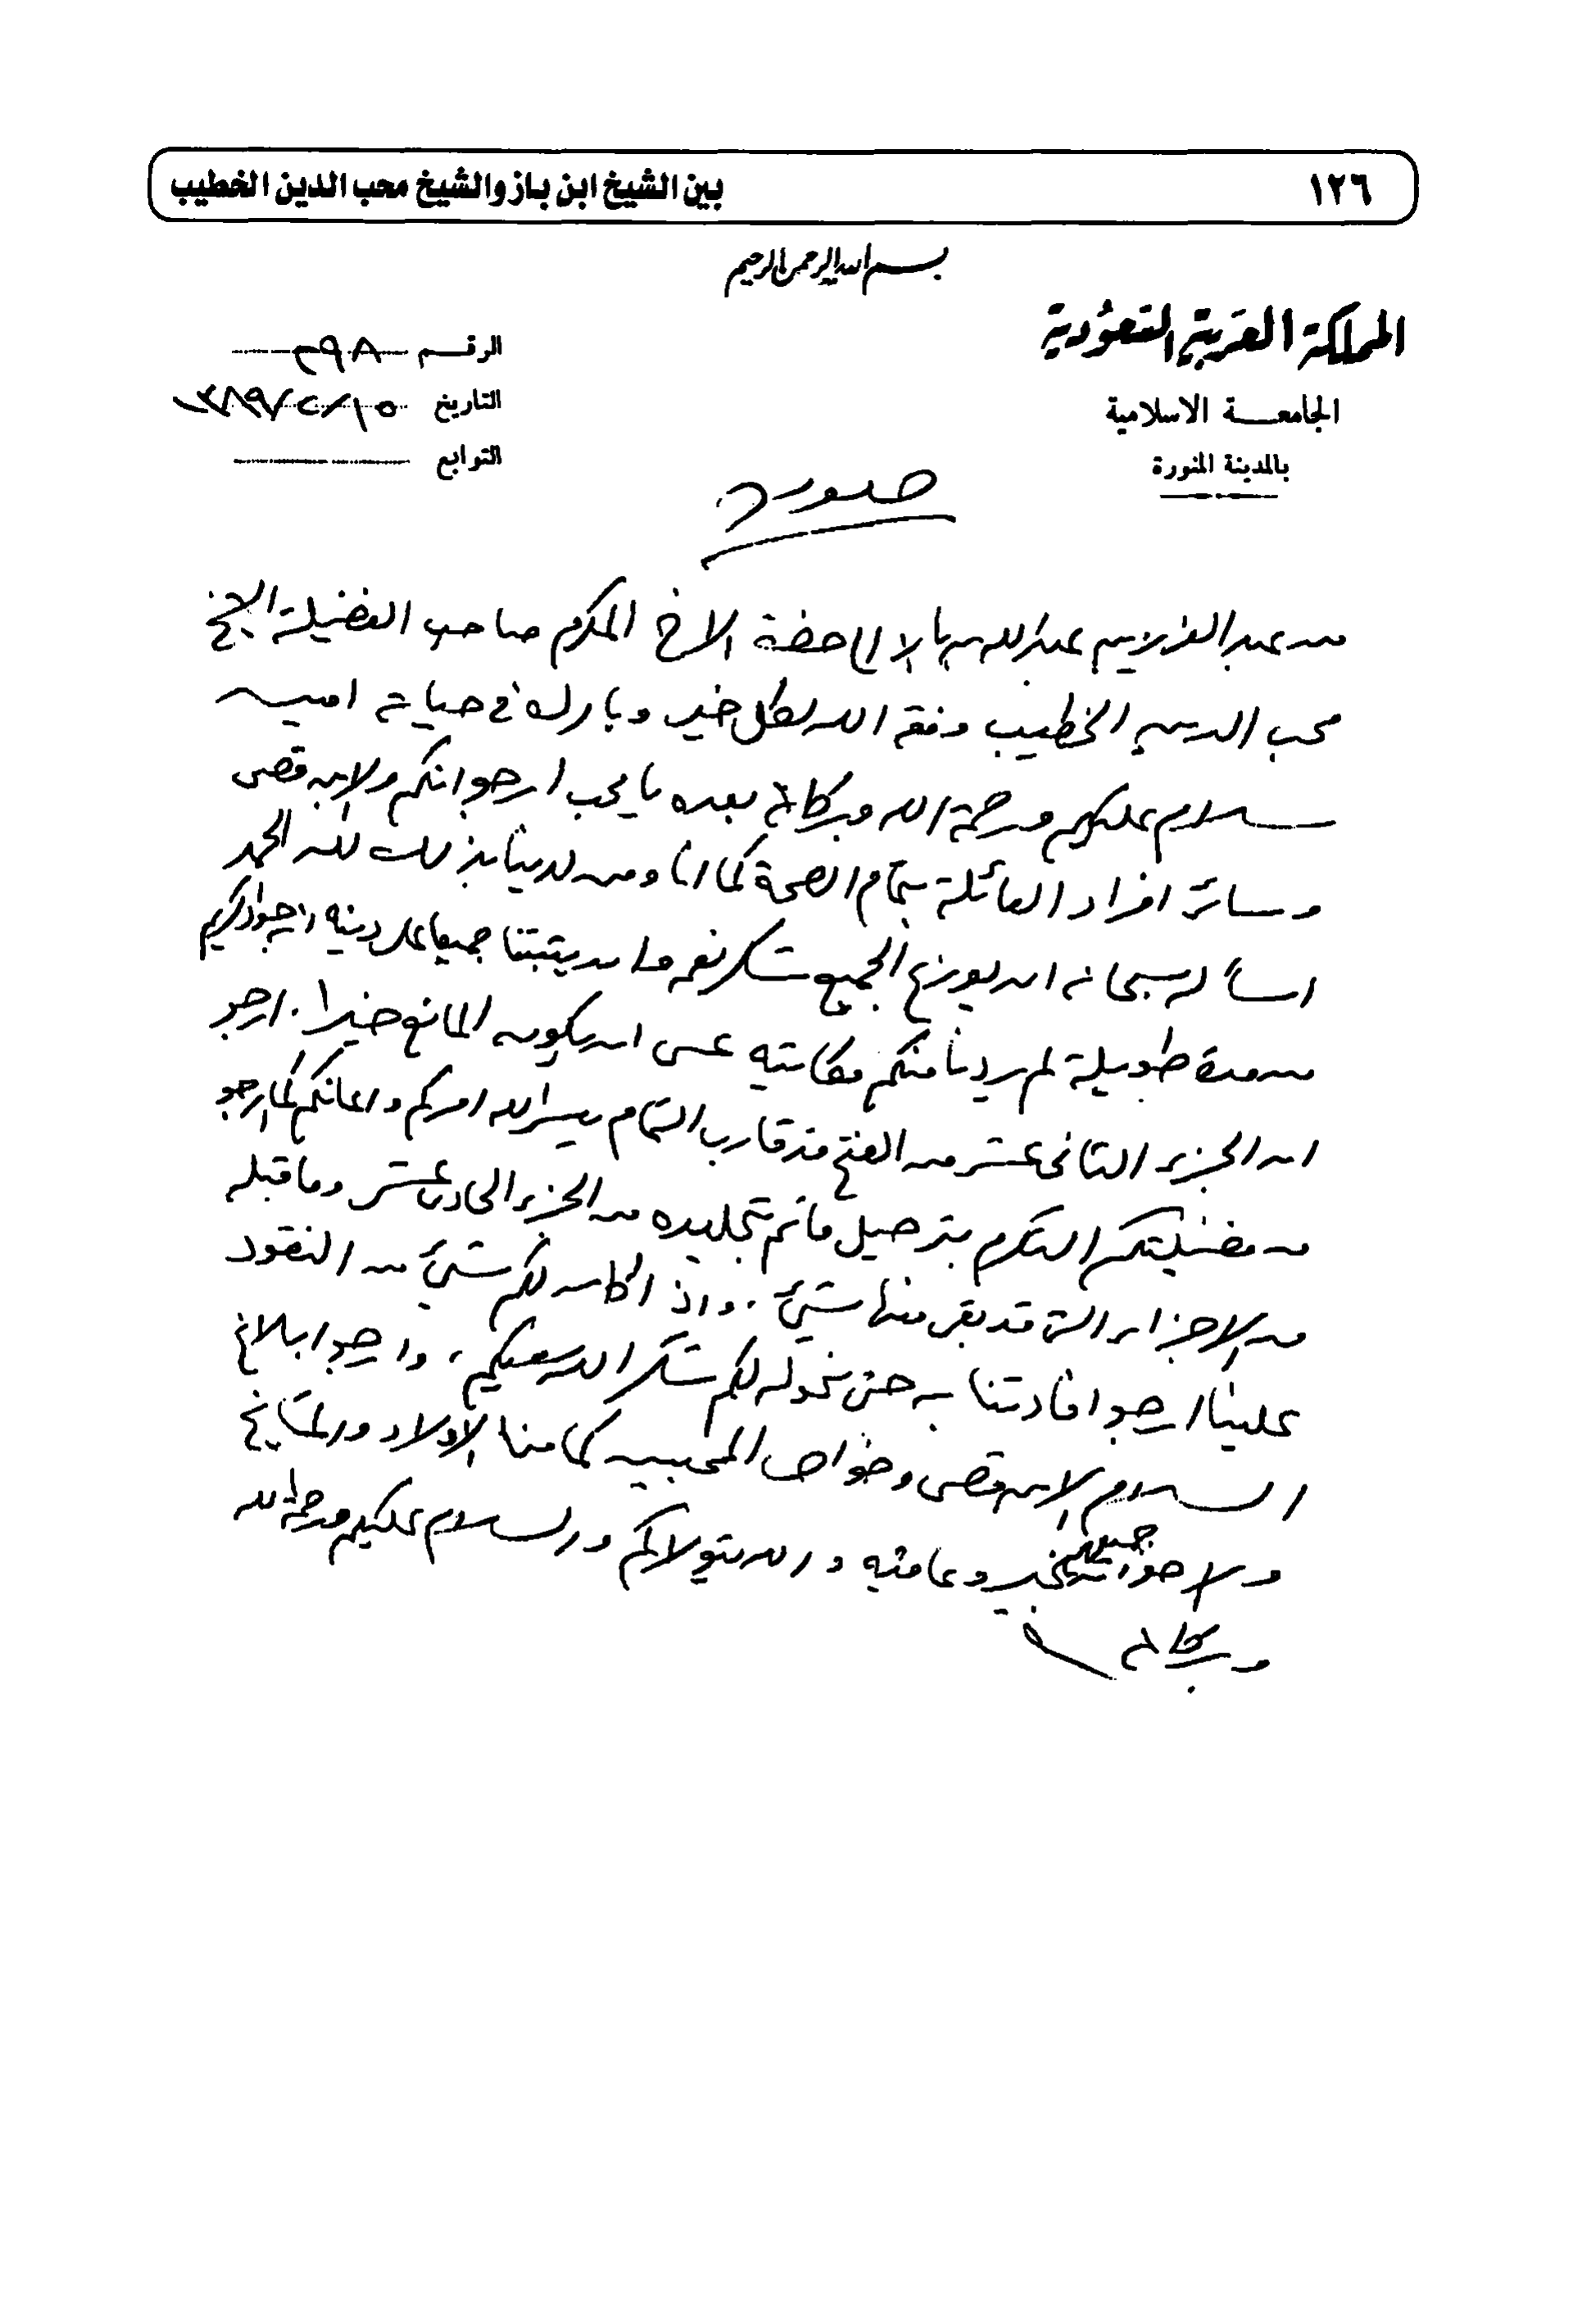 ١٢٦
بين الشيخ ابن باز والشيخ محب الدين الخطيب
بسم الله الرحمن الرحيم
المملكة العربية السعودية
الجامعة الاسلامية
بالمدينة المنورة
الرقم ٢٩٨
التاريخ ١٥/٢/١٣٨٩
التوابع
صورة
من عبد العزيز بن عبد الله بن باز الى حضرة الاخ المكرم صاحب الفضيلة الشيخ
محب الدين الخطيب وفقه الله لكل خير وبارك في حياته امين
سلام عليكم ورحمة الله وبركاته بعده يا محب ارجو انكم والابن قصي
وسائر افراد العائلة بتمام الصحة كما انا ومن لدينا بذلك لله الحمد
اسأله سبحانه ان يوزع الجميع شكر نعمه وان يثبتنا جميعا على دينه انه جواد كريم
من مدة طويلة لم يردنا منكم مكاتيب عسى ان يكون المانع خيرا . ارجو
ان الجزء الثاني عشر من الفتح قد قارب التمام يسر الله امركم واعانكم كما ارجو
من فضيلتكم التكرم بترحيل ما تم تجليده من الجزء الحادي عشر وما قبله
من الاجزاء التي قد بقي منها شيئ . واذا كان لكم شيئ من النقود
علينا ارجو افادتنا به حتى نحوله لكم شكر الله سعيكم ، وارجو ابلاغ
السلام الابن قصي وخواص المحبين كما منا الاولاد والمشايخ
والاخوان جميعهم بخير وعافيه والله يتولاكم والسلام عليكم ورحمة الله
وبركاته